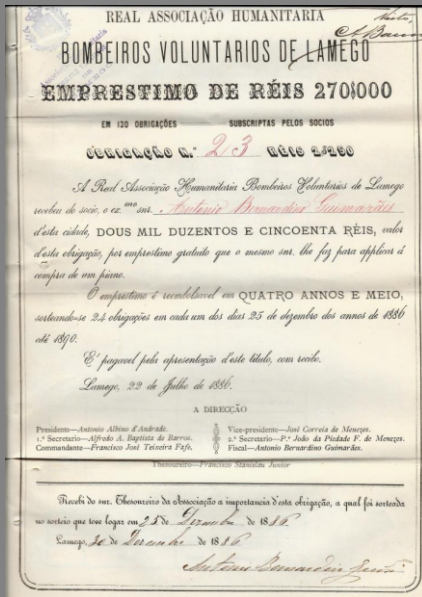 REAL ASSOCIAÇÃO HUMANITARIA
BOMBEIROS VOLUNTARIOS DE LAMEGO
EMPRESTIMO DE RÉIS 270$000
EM 120 OBRIGAÇÕES SUBSCRIPTAS PELOS SOCIOS
OBRIGAÇÃO N.º 23 RÉIS 2$250
A Real Associação Humanitaria Bombeiros Voluntarios de Lamego
recebeu do socio, o ex.mo snr. Antonio Bernardino Guimarães
d'esta cidade, DOUS MIL DUZENTOS E CINCOENTA RÉIS, valor
d'esta obrigação, por emprestimo gratuito que o mesmo snr. lhe faz para applicar á
compra de um piano.
O emprestimo é reembolsavel em QUATRO ANNOS E MEIO,
sorteando-se 24 obrigações em cada um dos dias 25 de dezembro dos annos de 1886
até 1890.
E' pagavel pela apresentação d'este titulo, com recibo.
Lamego, 22 de Julho de 1886.
A DIRECÇÃO
Presidente—Antonio Albino d'Andrade. Vice-presidente—José Correia de Menezes.
1.º Secretario—Alfredo A. Baptista de Barros. 2.º Secretario—P.e João da Piedade F. de Menezes.
Commandante—Francisco José Teixeira Fafe. Fiscal—Antonio Bernardino Guimarães.
Thesoureiro—Francisco Stanislau Junior
Recebi do snr. Thesoureiro da Associação a importancia d'esta obrigação, a qual foi sorteada
no sorteio que teve logar em 25 de Dezembro de 1886
Lamego, 30 de Dezembro de 1886
Antonio Bernardino